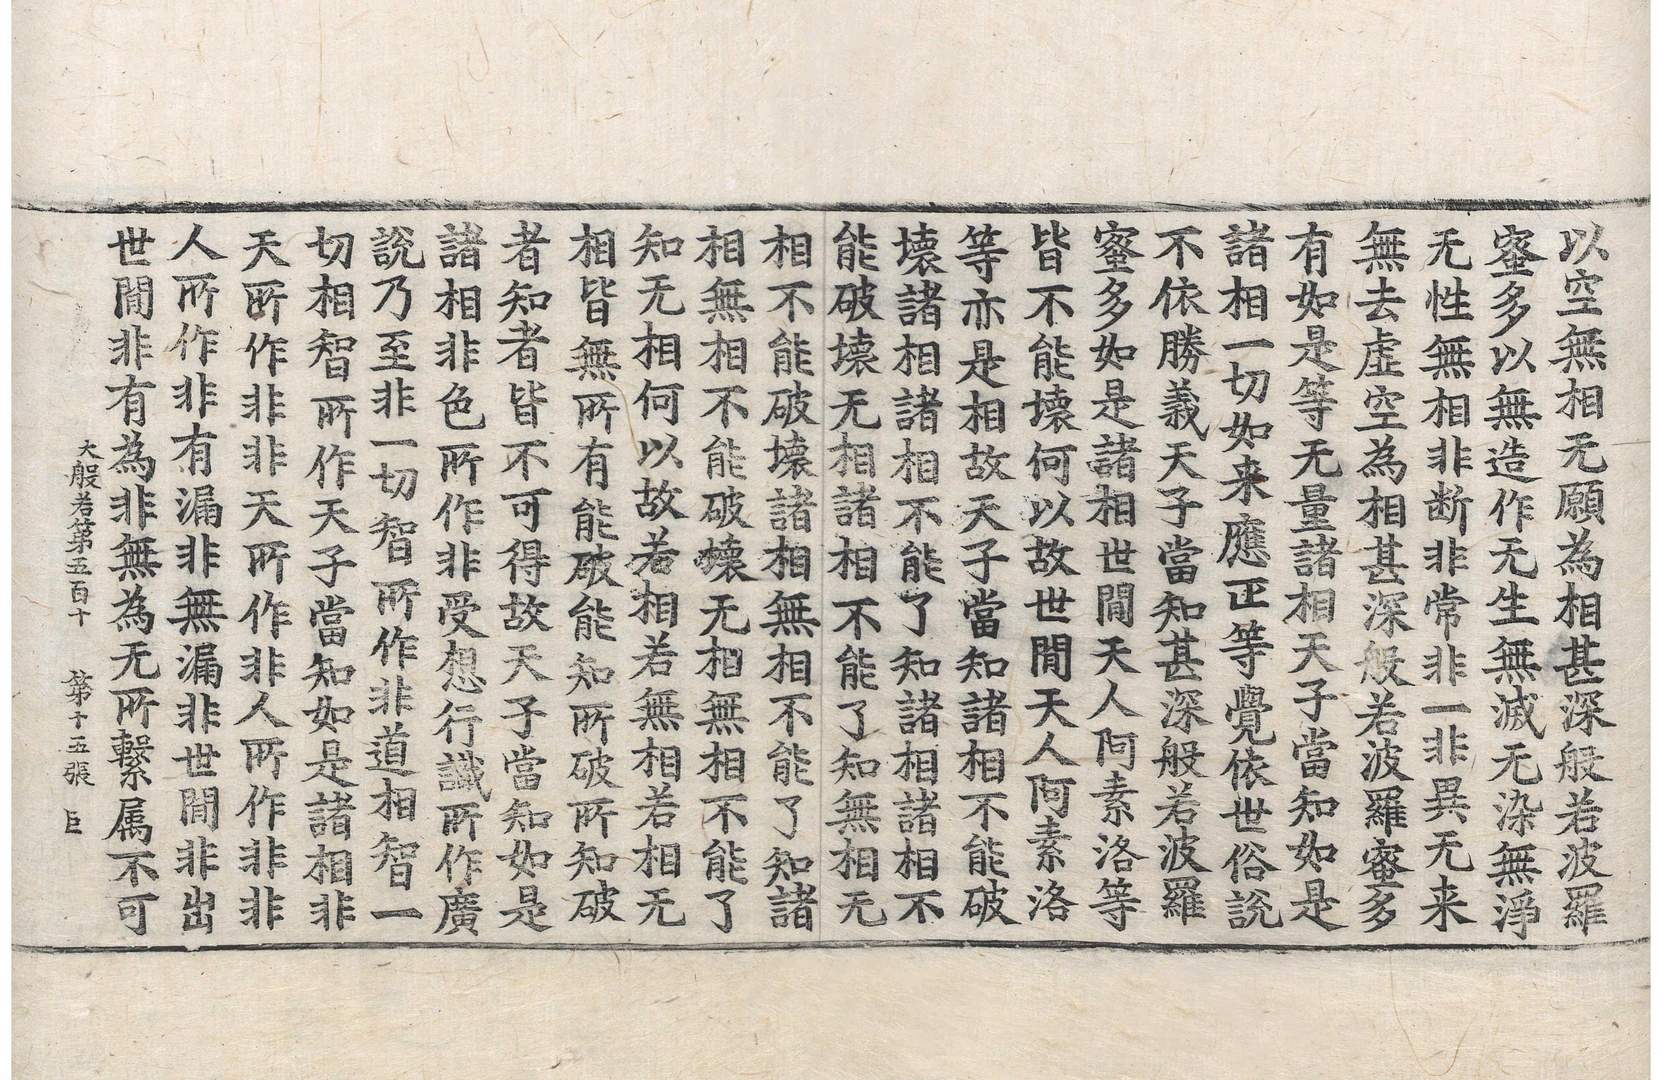 以空無相无願為相甚深般若波羅
蜜多以無造作无生無滅无染無淨
无性無相非断非常非一非異无来
無去虛空為相甚深般若波羅蜜多
有如是等无量諸相天子當知如是
諸相一切如来應正等覺依世俗說
不依勝義天子當知甚深般若波羅
蜜多如是諸相世間天人阿素洛等
皆不能壞何以故世間天人阿素洛
等亦是相故天子當知諸相不能破
壞諸相諸相不能了知諸相諸相不
能破壞无相諸相不能了知無相无
相不能破壞諸相無相不能了知諸
相無相不能破壞无相無相不能了
知无相何以故若相若無相若相无
相皆無所有能破能知所破所知破
者知者皆不可得故天子當知如是
諸相非色所作非受想行識所作廣
說乃至非一切智所作非道相智一
切相智所作天子當知如是諸相非
天所作非非天所作非人所作非非
人所作非有漏非無漏非世間非出
世間非有為非無為无所繫属不可
大般若第五百十　第十五張　巨